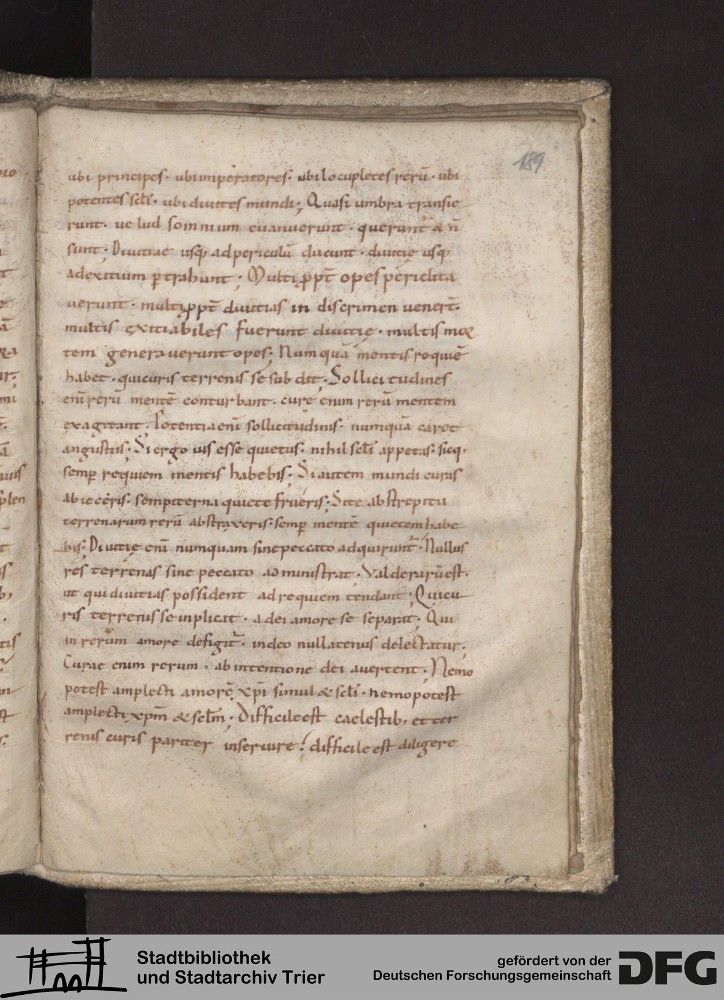 189
ubi principes · ubi imperatores · ubi locupletes rerū · ubi
potentes scłi · ubi divites mundi; Quasi umbra transie
runt · velud somnium evanuerunt · querunt̃ & ñ
sunt · Divitiae usq; ad periculū ducunt · divitię usq;
ad exitium ꝑtrahunt; Multi ꝓpt̃ opes periclita
verunt · multi ꝓpt̃ divitias in discrimen venert̃ ·
multis exitiabiles fuerunt divitię · multis mor
tem generaverunt opes; Numquā mentis requiē
habet · qui curis terrenis se subdit · Sollicitudines
enī rerū mentē conturbant · curę enim rerū mentem
exagitant · Potentia enī sollicitudinis · numquā caret
angustiis · Si ergo vis esse quietus · nihil scłi appetas · sicq;
semꝑ requiem mentis habebis; Si autem mundi curas
abieceris · sempiterna quiete frueris; Si te ab strepitu
terrenarum rerū abstraxeris · semꝑ mentē quietem habe
bis; Divitię enī numquam sine peccato adquirunt̃ · Nullus
res terrenas sine peccato administrat · Valde rarū est ·
ut qui divitias possident ad requiem tendant; Qui cu
ris terrenis se inplicat · a dei amore se separat; Qui
in rerum amore defigit̃ · in deo nullatenus delectatur;
Curae enim rerum · ab intentione dei avertent · Nemo
potest amplecti amorē xp̄i simul & scłi · nemo potest
amplecti xp̄m & scłm · Difficile est caelestib; et ter
renis curis pariter inservire · difficile est diligere
Stadtbibliothek
und Stadtarchiv Trier
gefördert von der
Deutschen Forschungsgemeinschaft
DFG